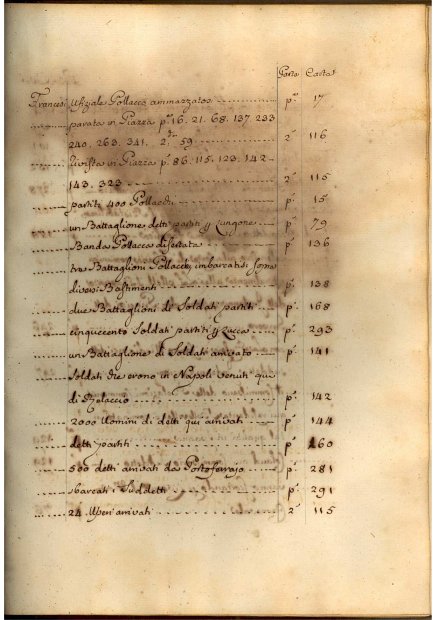 Parte Carta
Francesi Ufiziale Pollacco ammazzatosi p.ª 17
parata in Piazza p.ª 16. 21. 68. 137. 233
240. 263. 341. 2. 59 2ª 116
Rivista in Piazza p.ª 86. 115. 123. 142
143. 323 2ª 115
partiti 400 Pollacchi p.ª 15
un Battaglione detti partiti p Lungone p.ª 79
Banda Pollacca disertata p.ª 136
tre Battaglioni Pollacchi imbarcatisi sopra
diversi Bastimenti p.ª 138
due Battaglioni di Soldati partiti p.ª 168
cinquecento Soldati partiti p Lucca p.ª 293
un Battaglione di Soldati arrivato p.ª 141
Soldati che erono in Napoli venuti qui
di p.ª 142
2000 Uomini di detti qui arrivati p.ª 144
detti partiti p.ª 160
500 detti arrivati da Portoferrajo p.ª 281
sbarcati i Suddetti p.ª 291
24 arrivati 2ª 115